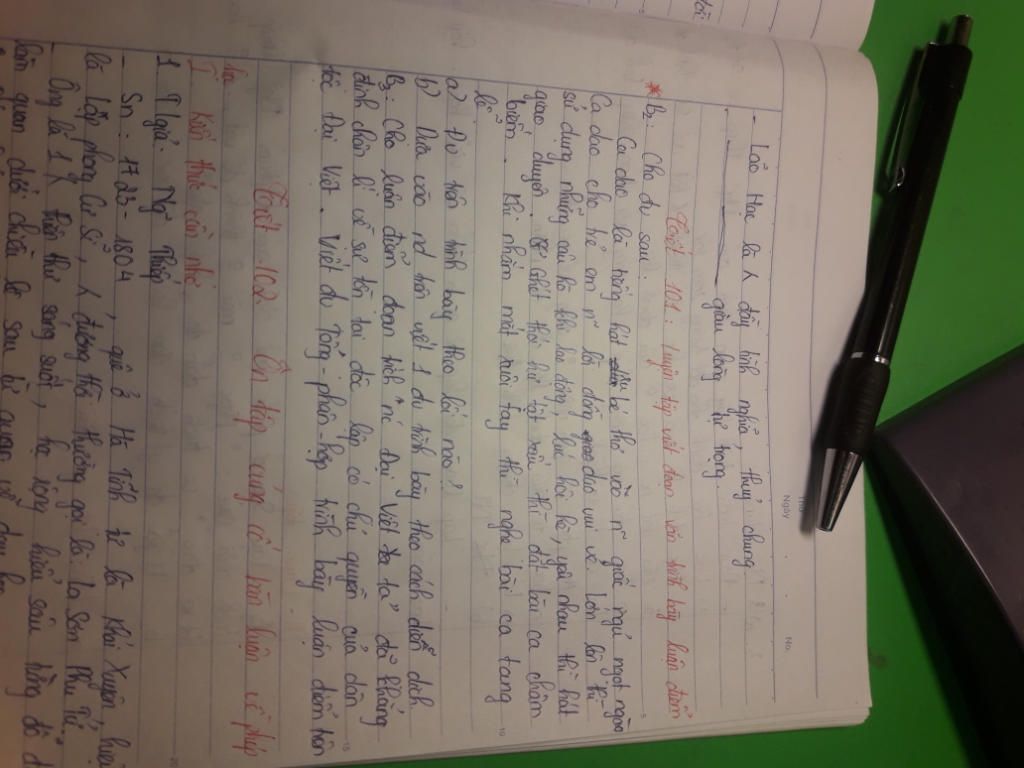 - Lão Hạc là 1 đầy tình nghĩa, thuỷ chung
giàu lòng tự trọng.
Thứ
Ngày
No.
Tiết 101: Luyện tập viết đoạn văn trình bày luận điểm
* B2: Cho đv sau:
Ca dao là tiếng hát bé thơ vào giấc ngủ ngọt ngào
Ca dao cho trẻ em lời đồng dao vui vẻ. Lớn lên thì
sử dụng những câu hò khi lao động, lúc hội hè, yêu nhau thì hát
giao duyên. Ghét thói hư tật xấu thì đặt lâu ca châm
biếm. Khi nhắm mắt xuôi tay thì nghe bài ca tang
lễ
a) Đv trên trình bày theo lối nào?
b) Dựa vào nd trên viết 1 đv trình bày theo cách diễn dịch
B3: Cho luận điểm "đoạn trích "nc Đại Việt ta" đã khẳng
định chân lí về sự tồn tại độc lập có chủ quyền của dân
tộc Đại Việt. Viết đv Tổng-phân-hợp trình bày luận điểm trên
Tiết 102 Ôn tập củng cố bàn luận về phép
học
I Kiến thức cần nhớ
1. Tgiả: Ng Thiếp
- Sn: 1723-1804, quê ở Hà Tĩnh
là Lạp phong cư sĩ, đương thời thường gọi là La Sơn Phu Tử
Ông là 1 thiên tư sáng suốt, học rộng hiểu sâu từng đỗ
làm quan dưới triều Lê sau từ quan về dạy học
5
10
15
20